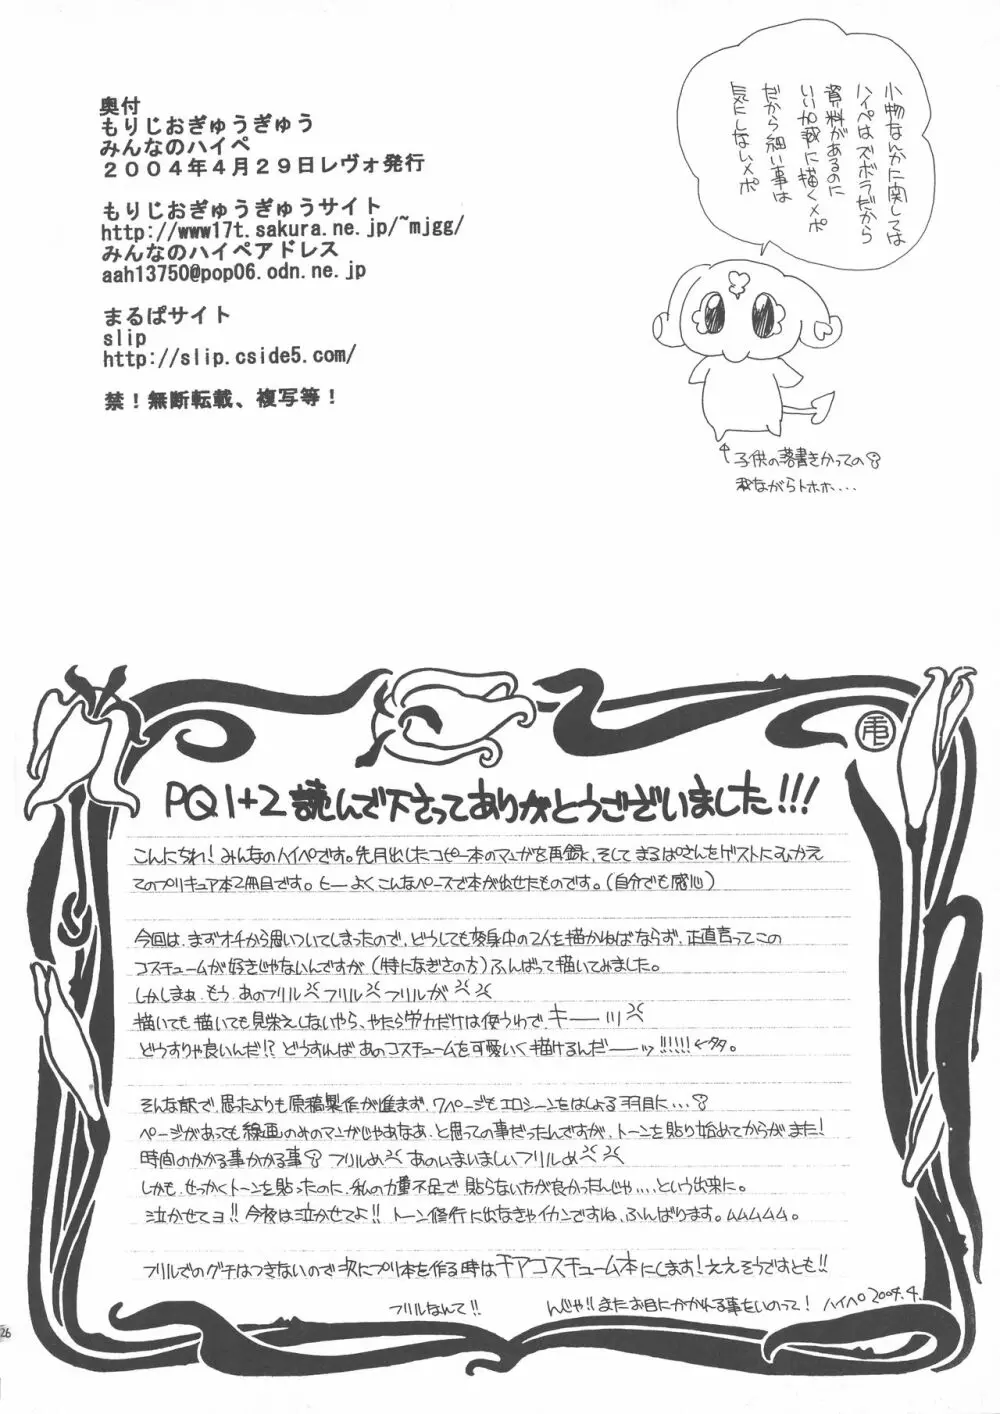 奥付
もりじおぎゅうぎゅう
みんなのハイペ
２００４年４月２９日レヴォ発行
もりじおぎゅうぎゅうサイト
http://www17t.sakura.ne.jp/~mjgg/
みんなのハイペアドレス
aah13750@pop06.odn.ne.jp
まるぱサイト
slip
http://slip.cside5.com/
禁！無断転載、複写等！
小物なんかに関しては
ハイペはズボラだから
資料があるのに
いい加減に描くメポ
だから細い事は
気にしないメポ
↑子供の落書きかっての
我ながらトホホ....
PQ1+2 読んで下さってありがとうございました!!!
こんにちわ！みんなのハイペです。先月出したコピー本のマンガを再録、そして まるぱさんをゲストにむかえ
てのプリキュア本2冊目です。ヒー よくこんなペースで本が出せたものです。(自分でも感心)
今回は、まずオチから思いついてしまったので、どうしても変身中の2人を描かねばならず、正直言ってこの
コスチュームが好きじゃないんですが(特になぎさの方)ふんばって描いてみました。
しかしまぁ、もう、あのフリル フリル フリルが
描いても描いても見栄えしないやら、やたら労力だけは使うわで キーーッ
どうすりゃ良いんだ!? どうすれば あのコスチュームを可愛いく描けるんだーーッ!!!!!!
そんな訳で、思たよりも原稿製作が進まず、7ページもエロシーンをはしょる羽目に...
ページがあっても線画のみのマンガじゃあなあ、と思っての事だったんですが、トーンを貼り始めてからがまた！
時間のかかる事かかる事 フリルめ あのいまいましいフリルめ
しかも、せっかくトーンを貼ったのに、私の力量不足で 貼らない方が良かったんじゃ....という出来に。
泣かせてヨ!! 今夜は泣かせてよ!! トーン修行に出なきゃイカンですね、ふんばります。ムムムムム。
フリルでのグチはつきないので次にプリ本を作る時はギアコスチューム本にします！ええそうですとも!!
フリルなんて!!
んじゃ!! またお目にかかれる事をいのって！ ハイペ 2004.4.
26